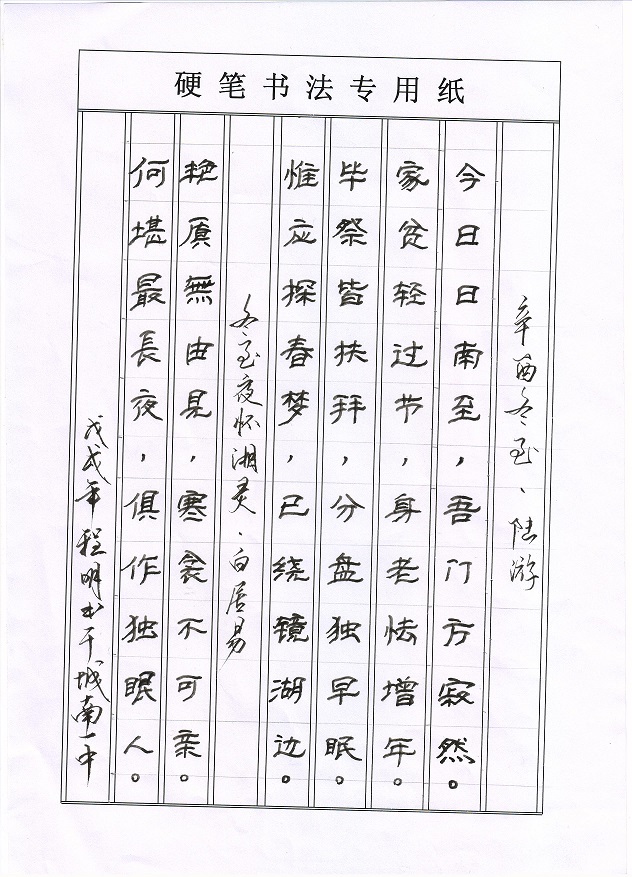 硬笔书法专用纸
辛酉冬至·陆游
今日日南至，吾门方寂然。
家贫轻过节，身老怯增年。
毕祭皆扶拜，分盘独早眠。
惟应探春梦，已绕镜湖边。
冬至夜怀湘灵·白居易
艳质無由見，寒衾不可亲。
何堪最長夜，俱作独眠人。
戊戌年程明书于城南一中